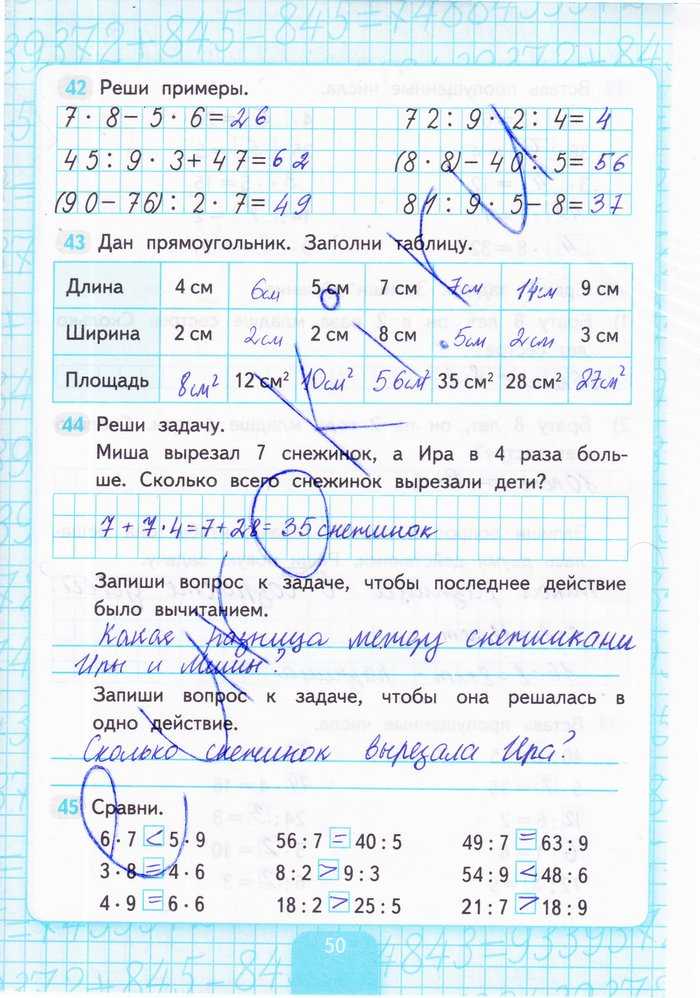 42 Реши примеры.
7 · 8 – 5 · 6 = 26 72 : 9 · 2 : 4 = 4
45 : 9 · 3 + 47 = 62 (8 · 8) – 40 : 5 = 56
(90 – 76) : 2 · 7 = 49 81 : 9 · 5 – 8 = 37
43 Дан прямоугольник. Заполни таблицу.
Длина 4 см 6см 5 см 7 см 7см 14см 9 см
Ширина 2 см 2см 2 см 8 см 5см 2см 3 см
Площадь 8см² 12 см² 10см² 56см² 35 см² 28 см² 27см²
44 Реши задачу.
Миша вырезал 7 снежинок, а Ира в 4 раза боль-
ше. Сколько всего снежинок вырезали дети?
7 + 7 · 4 = 7 + 28 = 35 снежинок
Запиши вопрос к задаче, чтобы последнее действие
было вычитанием.
Какая разница между снежинками
Иры и Миши?
Запиши вопрос к задаче, чтобы она решалась в
одно действие.
Сколько снежинок вырезала Ира?
45 Сравни.
6 · 7 < 5 · 9 56 : 7 = 40 : 5 49 : 7 = 63 : 9
3 · 8 = 4 · 6 8 : 2 > 9 : 3 54 : 9 < 48 : 6
4 · 9 = 6 · 6 18 : 2 > 25 : 5 21 : 7 > 18 : 9
50